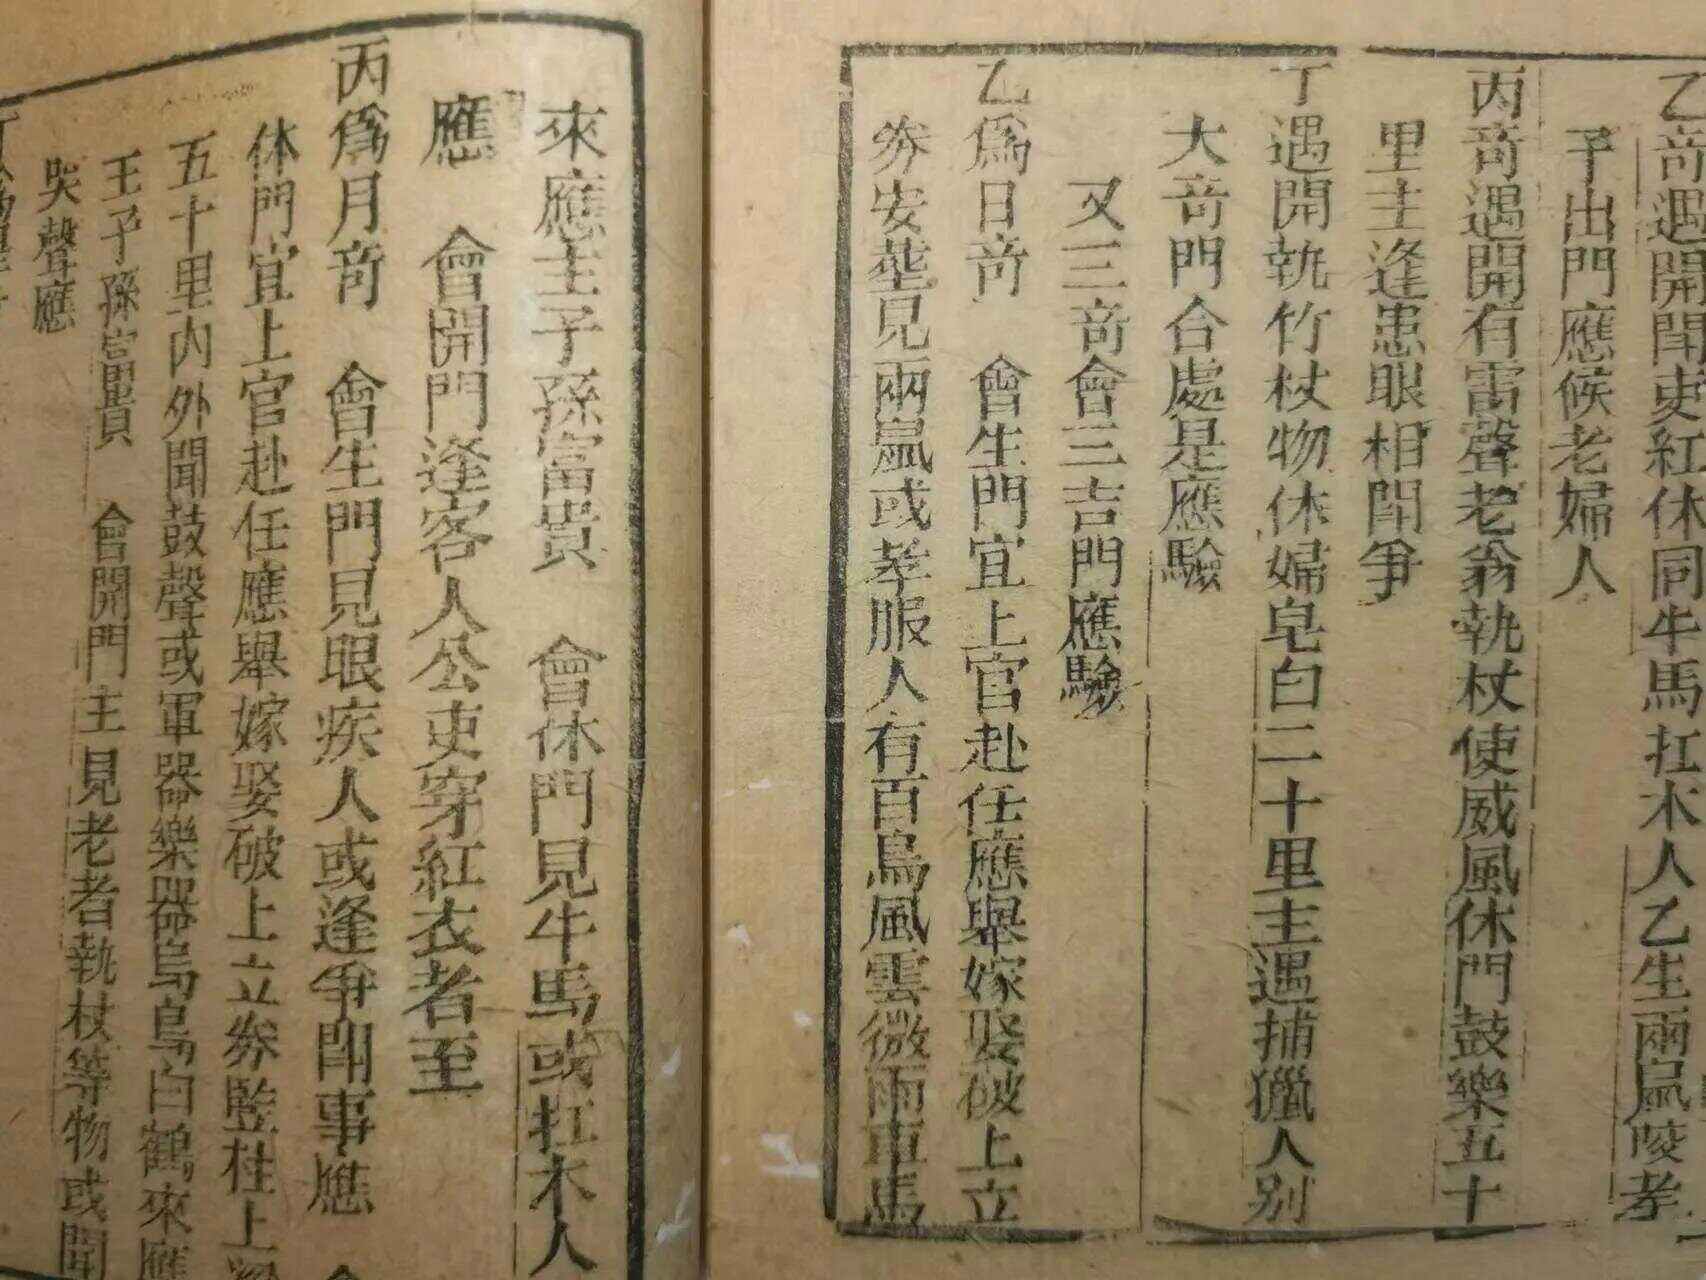 乙竒遇開聞吏紅休同牛馬扛木人乙生兩鼠咬孝
子出門應候老婦人
丙竒遇開有雷聲老翁執杖使威風休門鼓樂五十
里主逢患眼相鬧爭
丁遇開執竹杖物休婦皂白二十里主遇捕獵人别
大竒門合處是應驗
又三竒會三吉門應驗
乙為日竒 會生門宜上官赴任應舉嫁娶破上立
券安塟見兩鼠或孝服人有百鳥風雲微雨車馬
來應主子孫富貴 會休門見牛馬或扛木人
應 會開門逢客人公吏穿紅衣者至
丙為月竒 會生門見眼疾人或逢爭鬧事應
休門宜上官赴任應舉嫁娶破上立券監柱上
五十里内外聞鼓聲或軍器樂器烏鳥白鶴來應
主子孫富貴 會開門主見老者執杖等物或聞
哭聲應